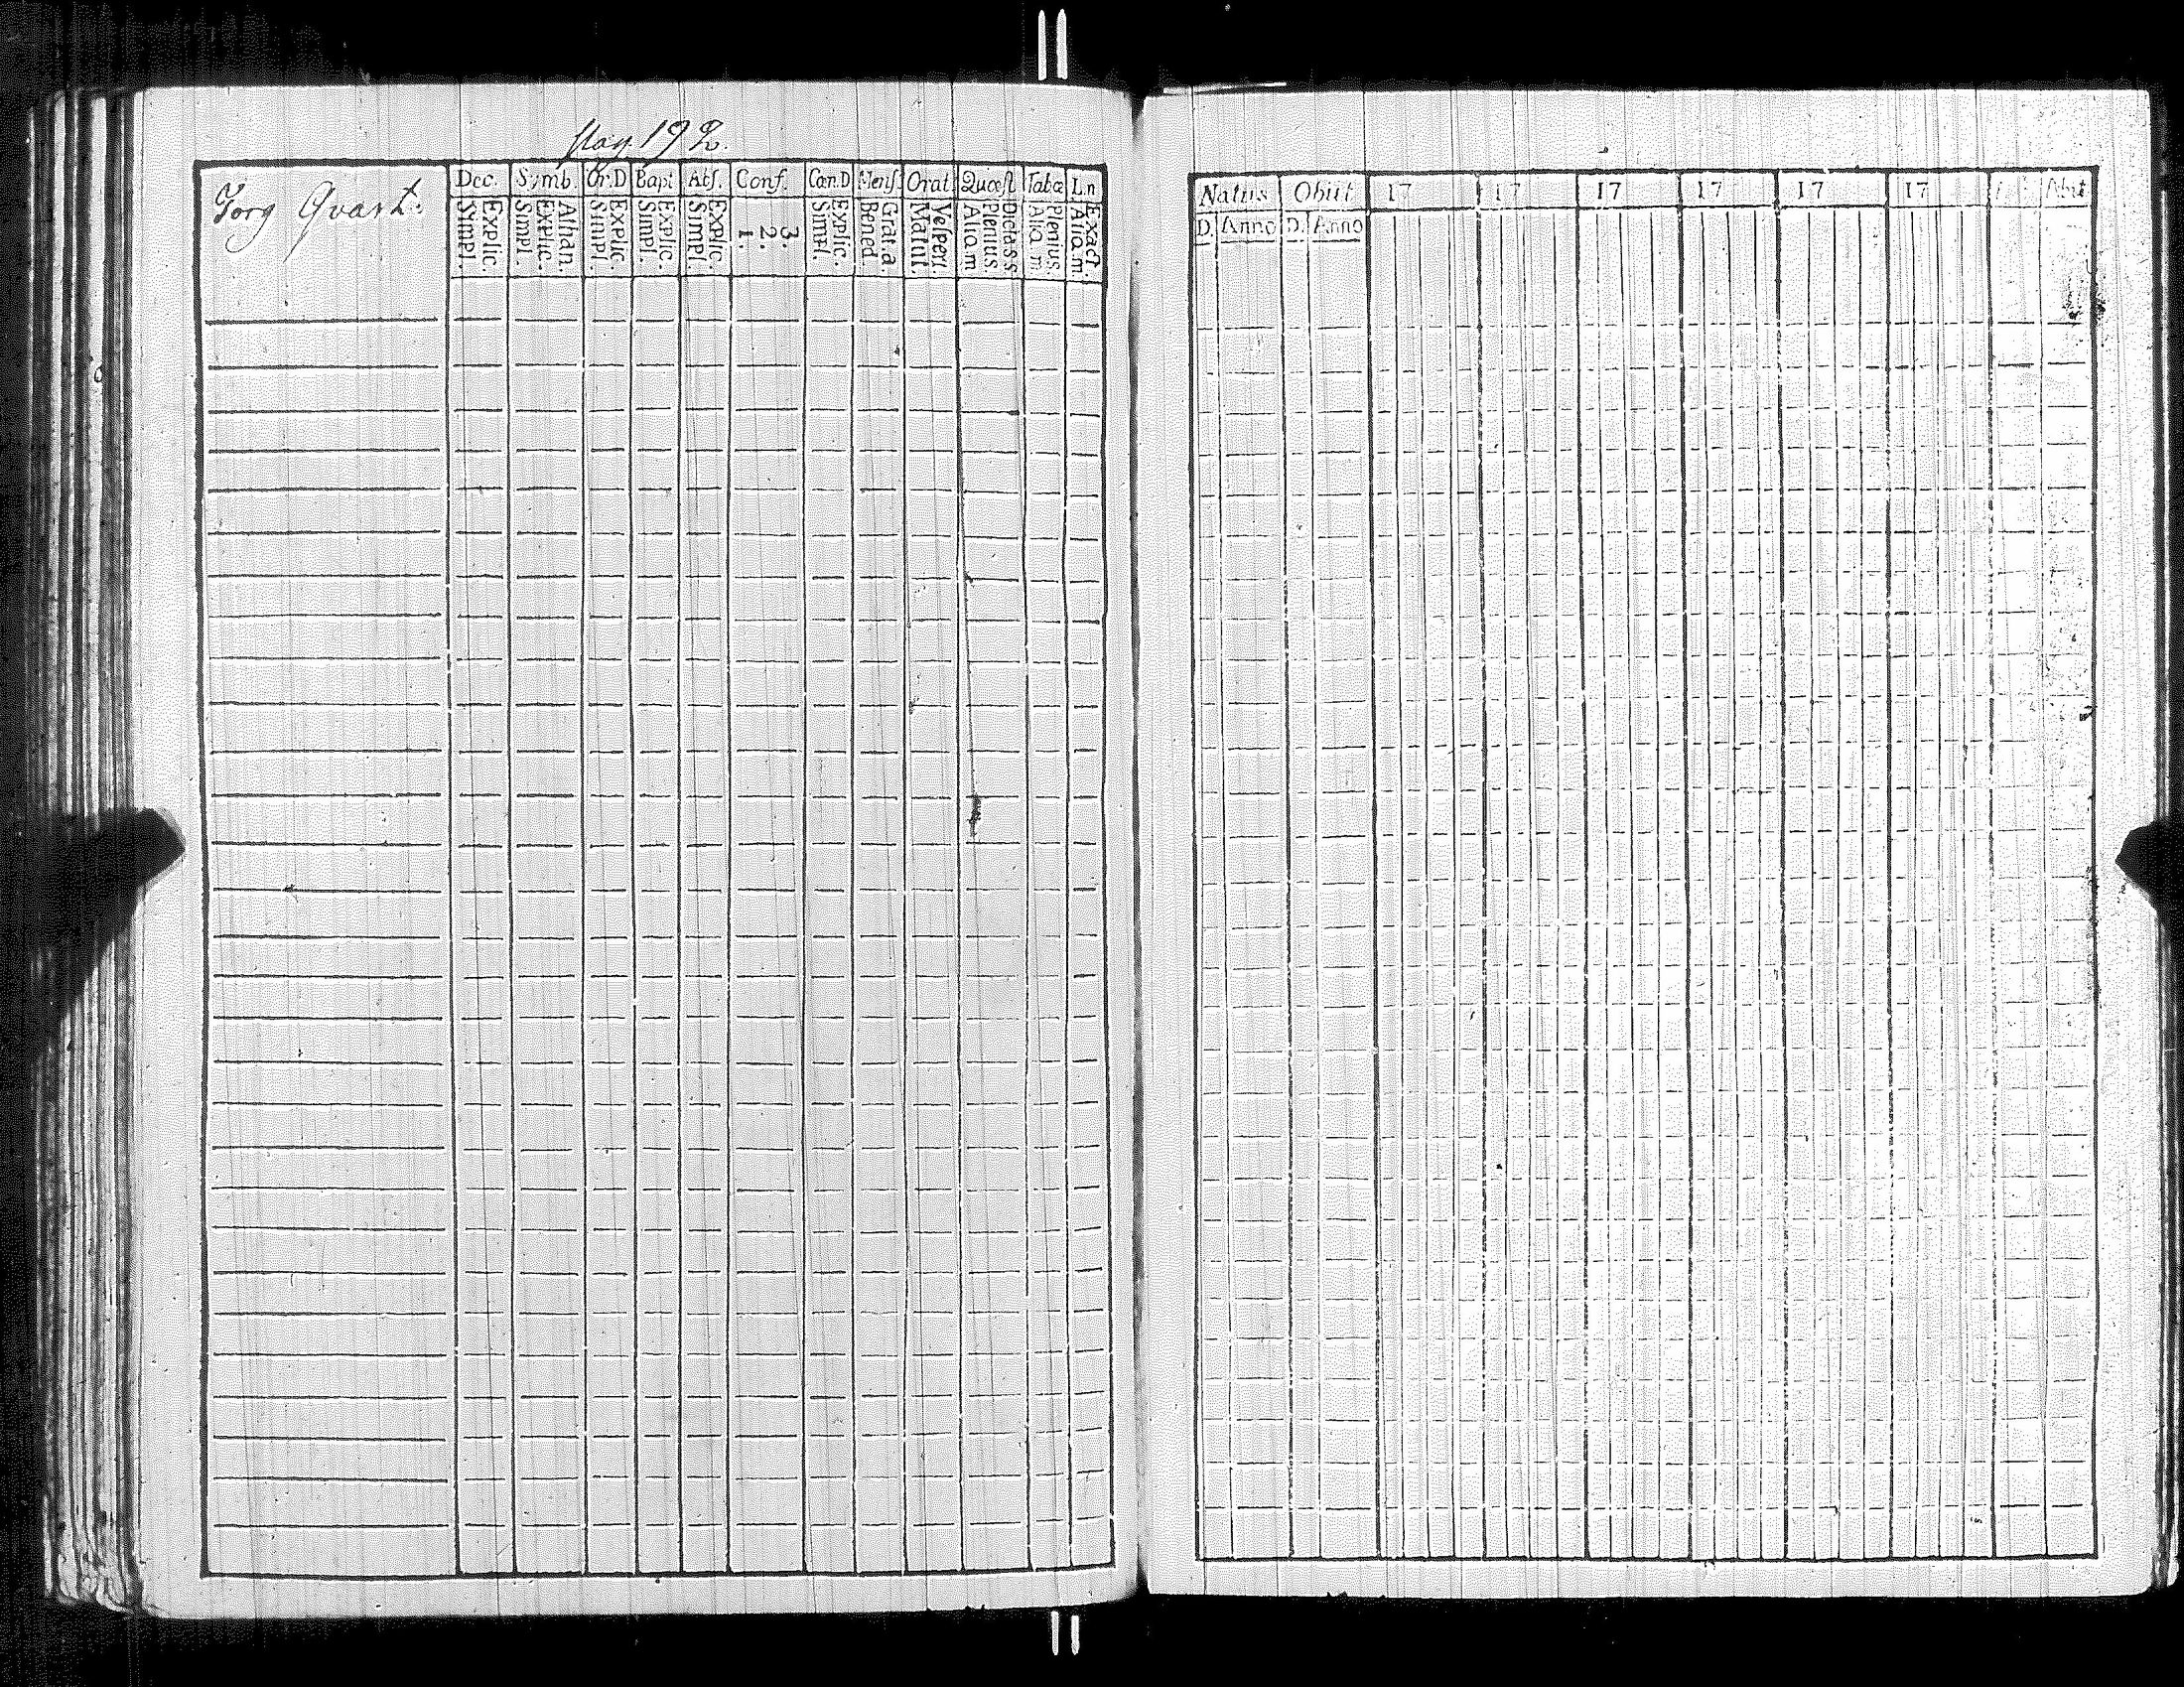 Pag. 192.
Torg Qvart:
Dec. Symb. Or.D Bapt Abs. Conf. Cœn.D Mens. Orat. Quæst Tabæ
Simpl. Explic. Simpl. Explic. Athan. Simpl. Explic. Simpl. Explic. Simpl. Explic. 1. 2. 3. Simpl. Explic. Bened. Grat.a. Matut. Vesper. Aliq.m Plenius. Dicta s s Aliq.m Plenius. Aliq.m. Exact.
Natus Obiit 17 17 17 17 17 17 Abiit
D. Anno D. Anno